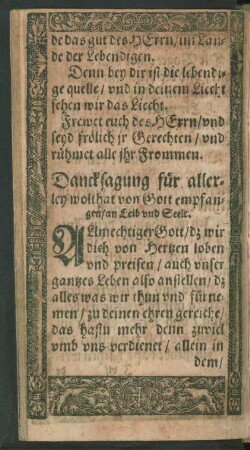 de das gut des HErrn/ im Lan-
de der Lebendigen.
Denn bey dir ist die lebendi-
ge quelle/ vnd in deinem Liecht
sehen wir das Liecht.
Frewet euch des HErrn/ vnd
seyd frölich jr Gerechten/ vnd
rühmet alle jhr Frommen.
Dancksagung für aller-
ley wolthat von Gott empfan-
gen/ an Leib vnd Seele.
ALlmechtiger Gott/ dz wir
dich von Hertzen loben
vnd preisen/ auch vnser
gantzes Leben also anstellen/ dz
alles was wir thun vnd fürne-
men/ zu deinen ehren gereiche/
das hastu mehr denn zuviel
vmb vns verdienet/ allein in
dem/